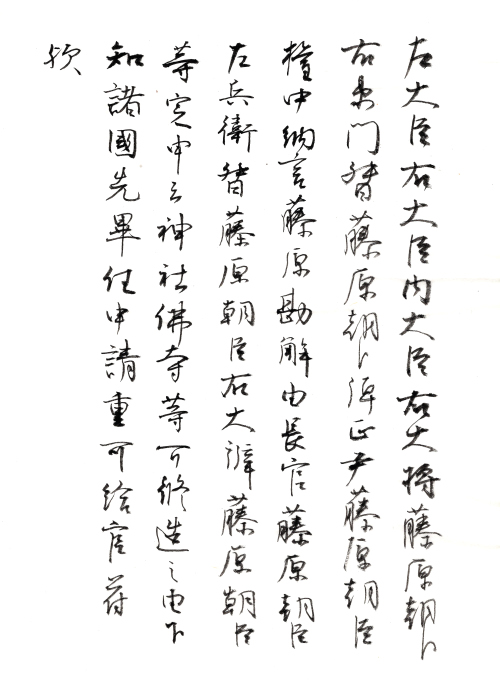 左大臣右大臣内大臣右大将藤原朝臣
右衛門督藤原朝臣弾正尹藤原朝臣
権中納言藤原勘解由長官藤原朝臣
左兵衛督藤原朝臣右大辨藤原朝臣
等定申云神社佛寺等可修造之由下
知諸國先畢任申請重可給官苻
欤